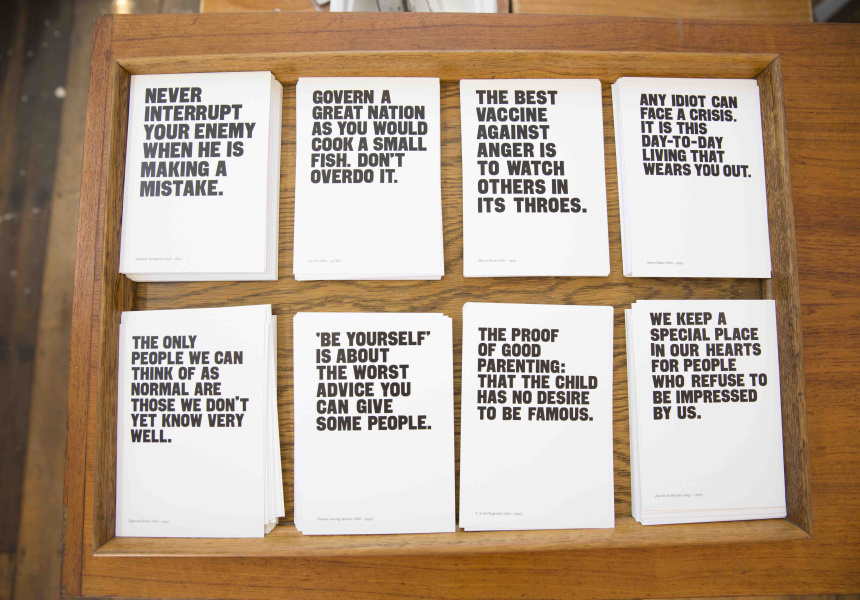 NEVER
INTERRUPT
YOUR ENEMY
WHEN HE IS
MAKING A
MISTAKE.
GOVERN A
GREAT NATION
AS YOU WOULD
COOK A SMALL
FISH. DON'T
OVERDO IT.
THE BEST
VACCINE
AGAINST
ANGER IS
TO WATCH
OTHERS IN
ITS THROES.
ANY IDIOT CAN
FACE A CRISIS.
IT IS THIS
DAY-TO-DAY
LIVING THAT
WEARS YOU OUT.
THE ONLY
PEOPLE WE CAN
THINK OF AS
NORMAL ARE
THOSE WE DON'T
YET KNOW VERY
WELL.
'BE YOURSELF'
IS ABOUT
THE WORST
ADVICE YOU
CAN GIVE
SOME PEOPLE.
THE PROOF
OF GOOD
PARENTING:
THAT THE CHILD
HAS NO DESIRE
TO BE FAMOUS.
WE KEEP A
SPECIAL PLACE
IN OUR HEARTS
FOR PEOPLE
WHO REFUSE TO
BE IMPRESSED
BY US.